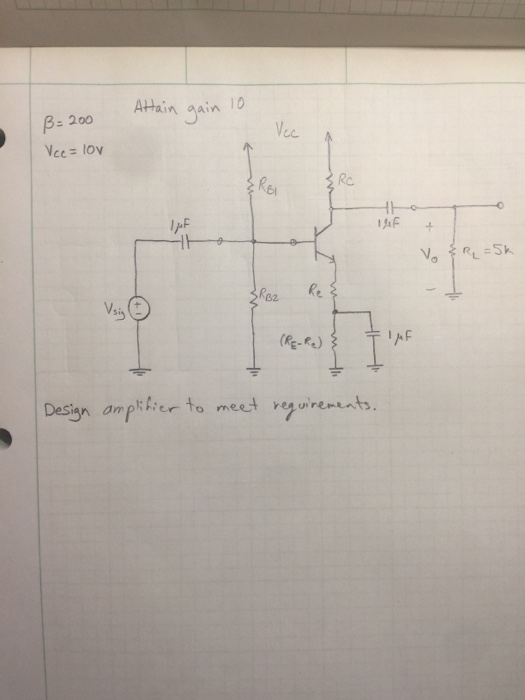 Attain gain 10
β = 200
Vcc = 10V
Vcc
RB1
RC
1μF
1μF
+
Vo
-
RL = 5k
RB2
Re
Vsig
+
-
(RE-Re)
1μF
Design amplifier to meet requirements.